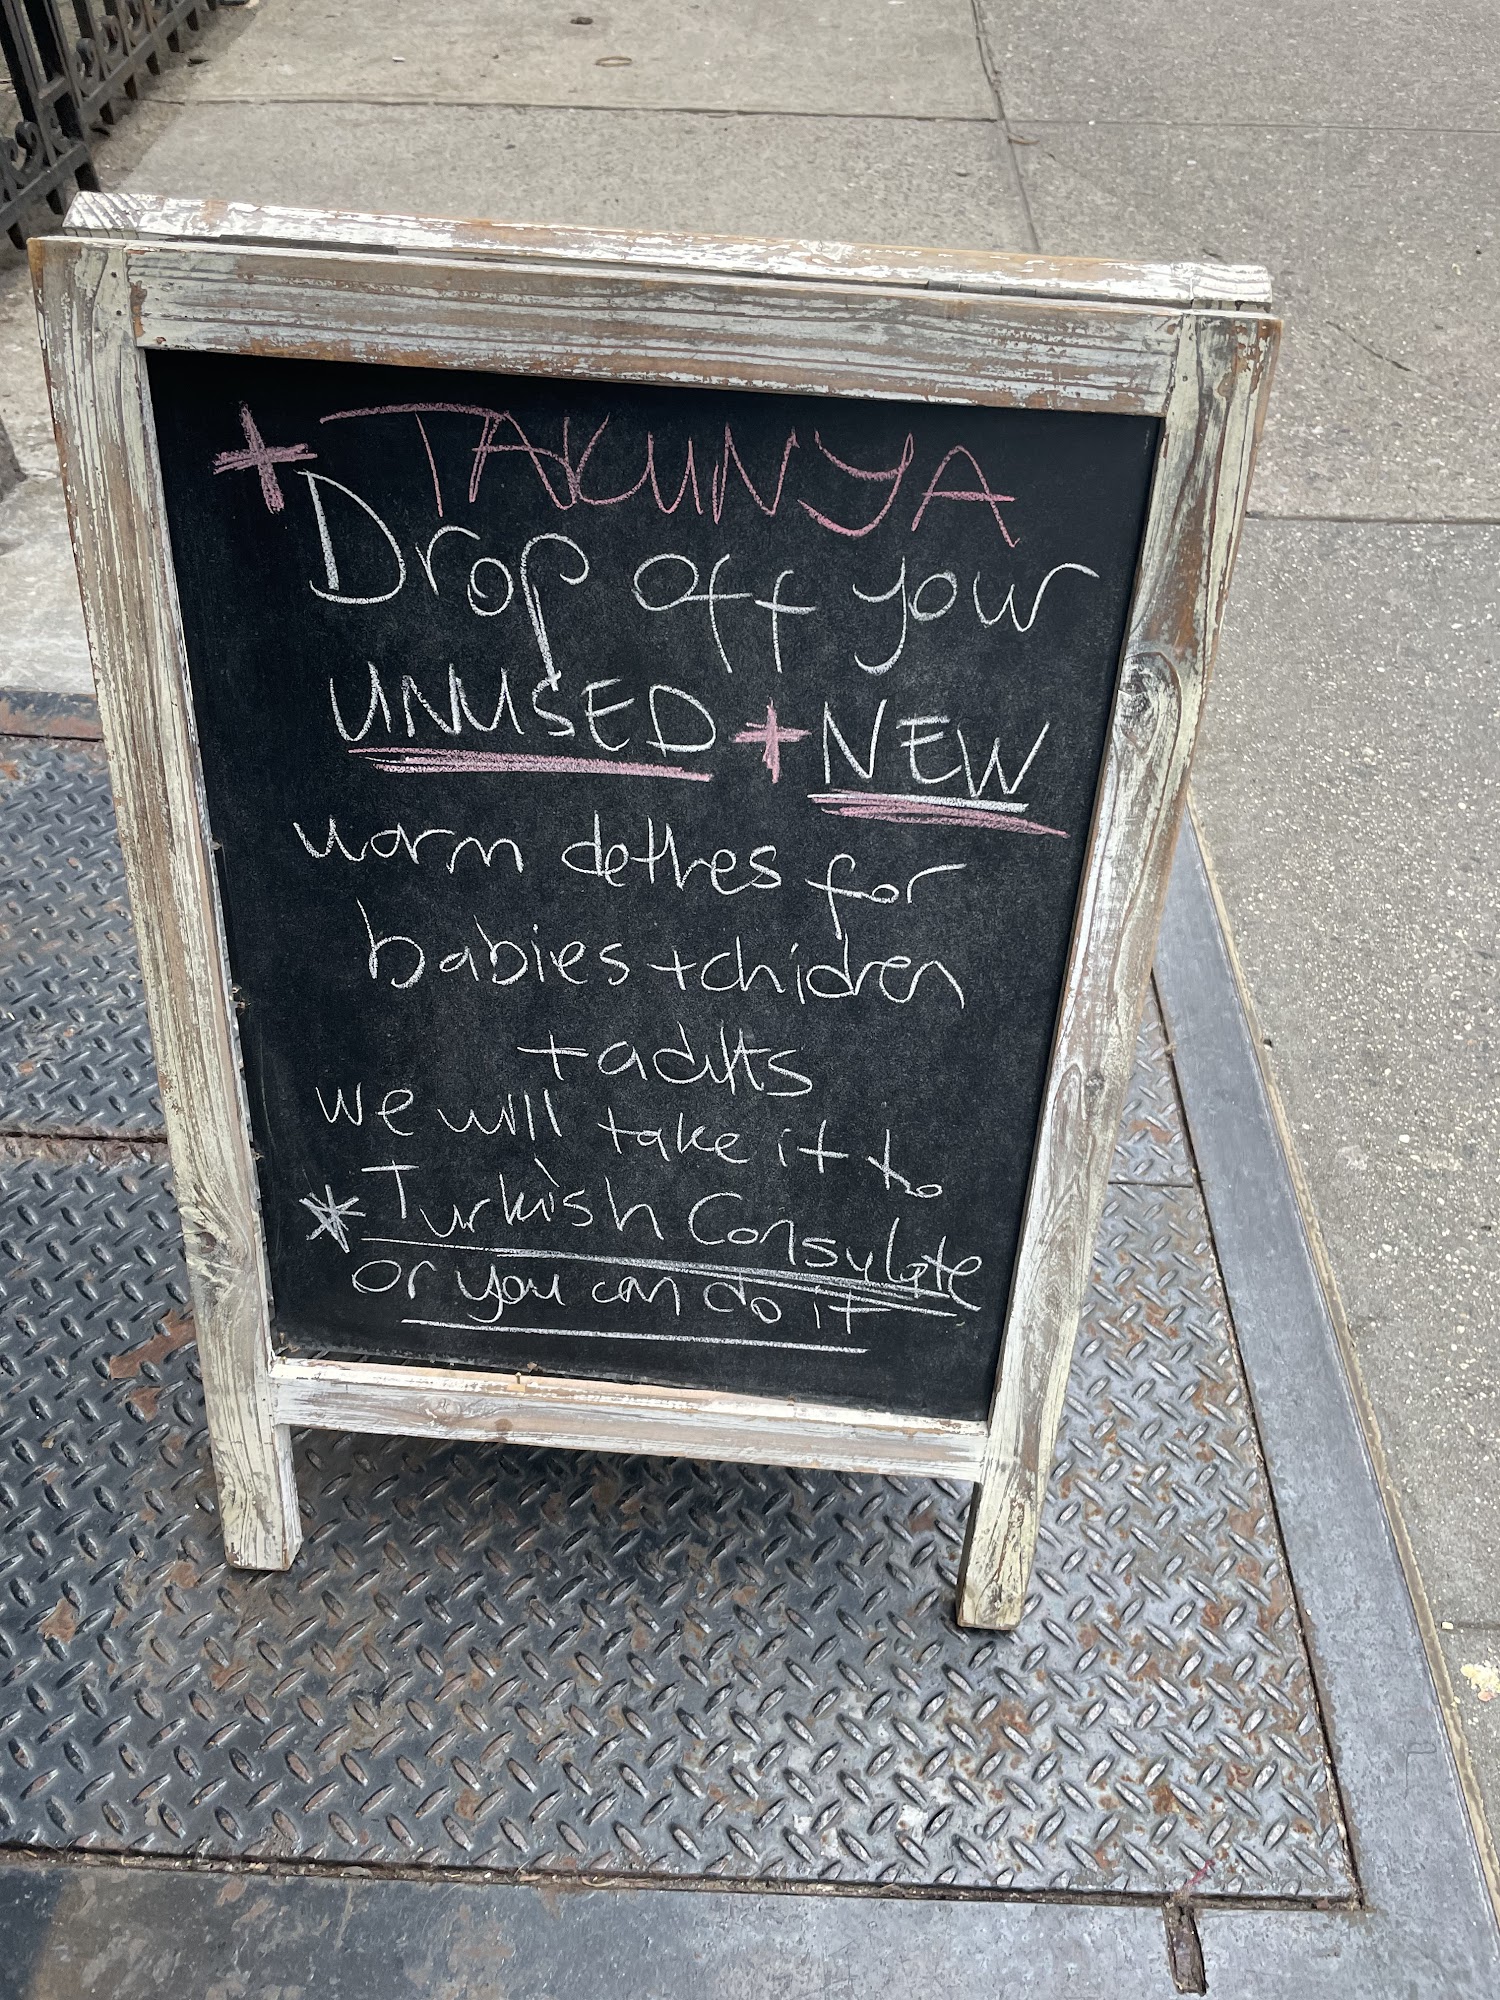 + TAKUNYA
Drop off your
UNUSED + NEW
warm clothes for
babies + children
+ adults
we will take it to
* Turkish Consulate
or you can do it